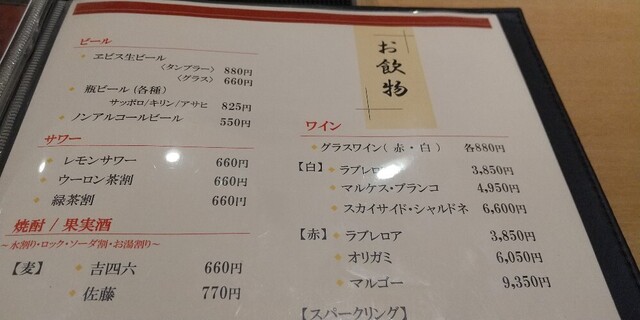 お飲物
ビール
ヱビス生ビール
〈タンブラー〉 880円
〈グラス〉 660円
瓶ビール(各種)
サッポロ/キリン/アサヒ 825円
ノンアルコールビール 550円
サワー
レモンサワー 660円
ウーロン茶割 660円
緑茶割 660円
焼酎/果実酒
～水割り・ロック・ソーダ割・お湯割り～
【麦】 吉四六 660円
佐藤 770円
ワイン
グラスワイン(赤・白) 各880円
【白】 ラブレロア 3,850円
マルケス・ブランコ 4,950円
スカイサイド・シャルドネ 6,600円
【赤】 ラブレロア 3,850円
オリガミ 6,050円
マルゴー 9,350円
【スパークリング】